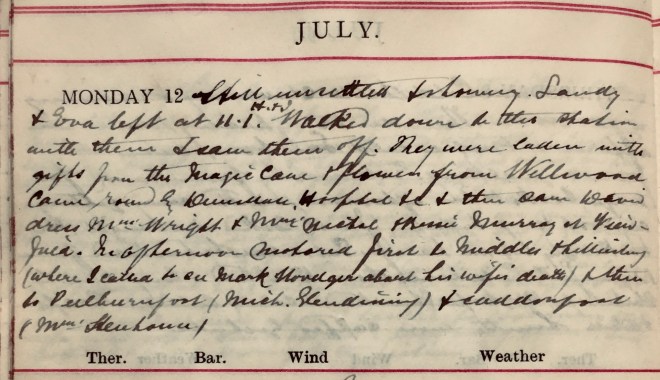 JULY.
MONDAY 12 Still unsettled & showery. Sandy
& Eva left at 11.1. Walked down to the station
with them & saw them off. They were laden with
gifts from the Magic Cave & flowers from Wellwood
Came round by Hospital &c & then saw David
dress Mrs Wright & Mrs & Bessie Murray at
In afternoon motored first to &
(where I called to see Mark about his wife's death) & then
to (Mich. Glendinning) &
(Mrs Stenhouse)
Ther. Bar. Wind Weather